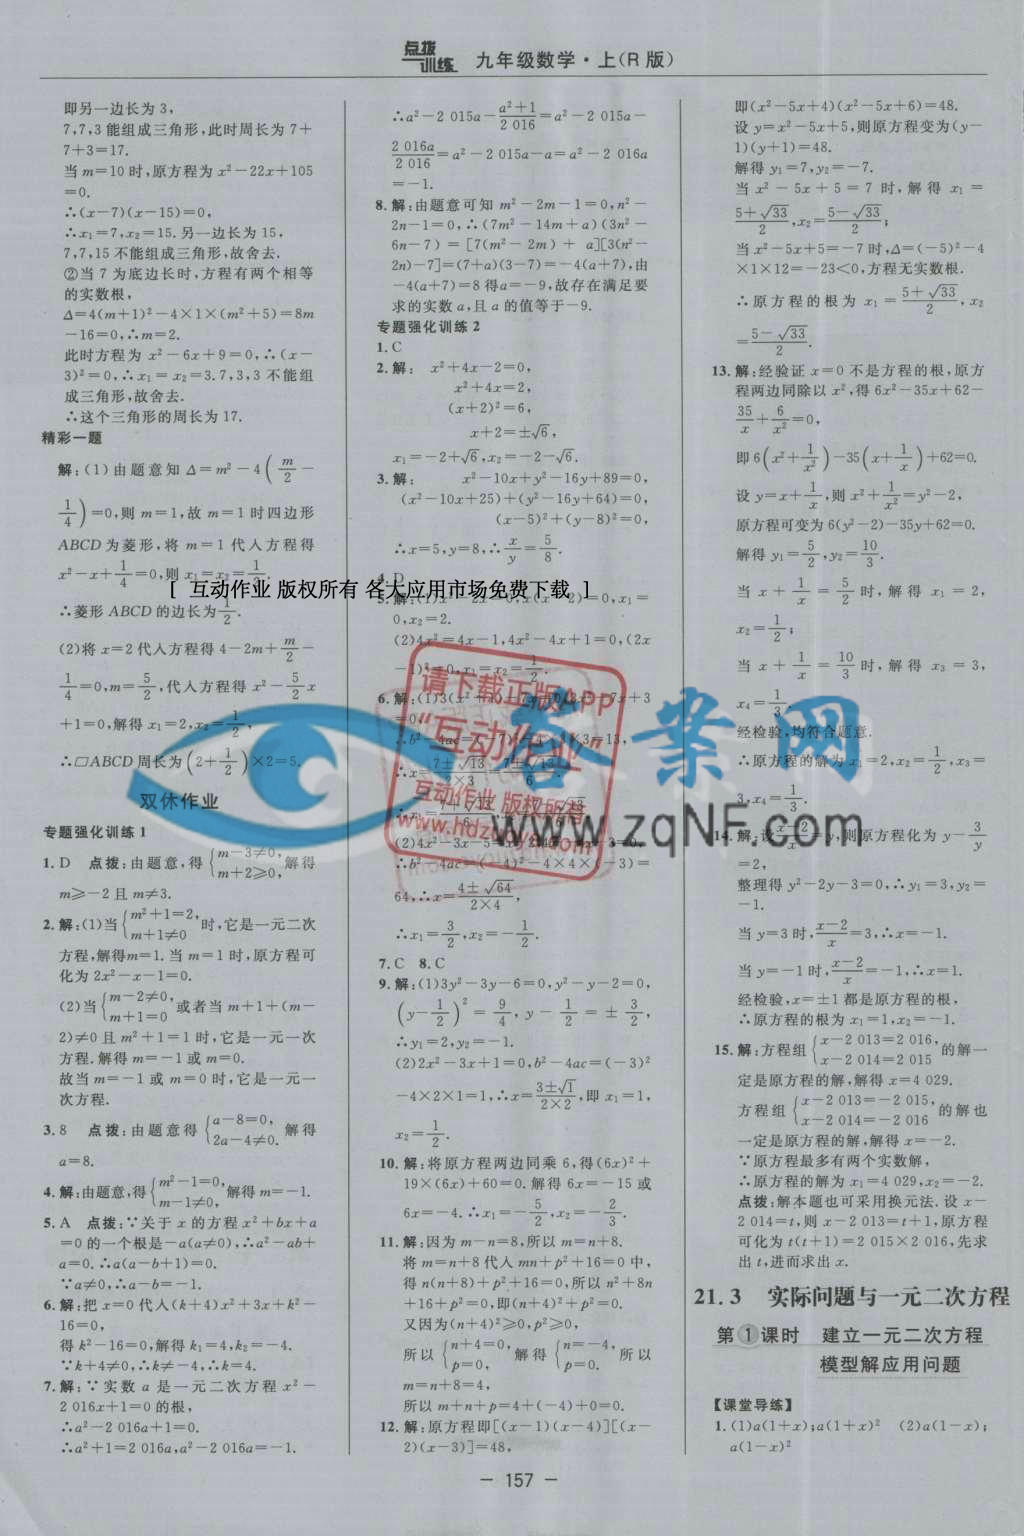 点拨训练 九年级数学·上(R版)
即另一边长为3,
7,7,3能组成三角形,此时周长为7+
7+3=17.
当m=10时,原方程为x²-22x+105
=0.
∴(x-7)(x-15)=0,
∴x₁=7,x₂=15.另一边长为15,
7,7,15不能组成三角形,故舍去.
②当7为底边长时,方程有两个相等
的实数根,
Δ=4(m+1)²-4×1×(m²+5)=8m
-16=0,∴m=2.
此时方程为x²-6x+9=0,∴(x-
3)²=0,∴x₁=x₂=3.7,3,3不能组
成三角形,故舍去.
∴这个三角形的周长为17.
精彩一题
解:(1)由题意知Δ=m²-4(m/2-
1/4)=0,则m=1,故m=1时四边形
ABCD为菱形,将m=1代人方程得
x²-x+1/4=0,则x₁=x₂=1/2.
∴菱形ABCD的边长为1/2.
(2)将x=2代人方程得4-2m+m/2-
1/4=0,m=5/2,代人方程得x²-5/2x
+1=0,解得x₁=2,x₂=1/2,
∴▱ABCD周长为(2+1/2)×2=5.
双休作业
专题强化训练1
1.D 点拨:由题意,得{m-3≠0, m+2≥0,解得
m≥-2且m≠3.
2.解:(1)当{m²+1=2, m+1≠0时,它是一元二次
方程,解得m=1.当m=1时,原方程可
化为2x²-x-1=0.
(2)当{m-2≠0, m+1=0或者当m+1+(m-
2)≠0且m²+1=1时,它是一元一次
方程.解得m=-1或m=0.
故当m=-1或m=0时,它是一元一
次方程.
3.8 点拨:由题意得{a-8=0, 2a-4≠0.解得
a=8.
4.解:由题意,得{m²-1=0, m-1≠0,解得m=-1.
5.A 点拨:∵关于x的方程x²+bx+a
=0的一个根是-a(a≠0),∴a²-ab+
a=0.∴a(a-b+1)=0.
∵a≠0,∴a-b=-1.
6.解:把x=0代人(k+4)x²+3x+k²-
16=0,
得k²-16=0,解得k₁=4,k₂=-4.
∵k+4≠0,∴k≠-4,∴k=4.
7.解:∵实数a是一元二次方程x²-
2 016x+1=0的根,
∴a²-2 016a+1=0.
∴a²+1=2 016a,a²-2 016a=-1.
∴a²-2 015a-(a²+1)/2 016=a²-2 015a-
2 016a/2 016=a²-2 015a-a=a²-2 016a
=-1.
8.解:由题意可知m²-2m-1=0,n²-
2n-1=0,∴(7m²-14m+a)(3n²-
6n-7)=[7(m²-2m)+a][3(n²-
2n)-7]=(7+a)(3-7)=-4(a+7),由
-4(a+7)=8得a=-9,故存在满足要
求的实数a,且a的值等于-9.
专题强化训练2
1.C
2.解:x²+4x-2=0,
x²+4x=2,
(x+2)²=6,
x+2=±√6,
x₁=-2+√6,x₂=-2-√6.
3.解:x²-10x+y²-16y+89=0,
(x²-10x+25)+(y²-16y+64)=0,
(x-5)²+(y-8)²=0,
∴x=5,y=8,∴x/y=5/8.
4.D
[ 互动作业 版权所有 各大应用市场免费下载 ]
0,x₂=2.
(2)4x²=4x-1,4x²-4x+1=0,(2x
-1)²=0,x₁=x₂=1/2.
请下载正版App
"互动作业"
互动作业 版权所有
答案网
www.zqNF.com
64,∴x=(4±√64)/(2×4),
∴x₁=3/2,x₂=-1/2.
7.C 8.C
9.解:(1)3y²-3y-6=0,y²-y-2=0,
(y-1/2)²=9/4,y-1/2=±3/2,
∴y₁=2,y₂=-1.
(2)2x²-3x+1=0,b²-4ac=(-3)²
-4×2×1=1,∴x=(3±√1)/(2×2),即x₁=1,
x₂=1/2.
10.解:将原方程两边同乘6,得(6x)²+
19×(6x)+60=0.解得6x=-15或
6x=-4.∴x₁=-5/2,x₂=-2/3.
11.解:因为m-n=8,所以m=n+8.
将m=n+8代人mn+p²+16=0中,
得n(n+8)+p²+16=0,所以n²+8n
+16+p²=0,即(n+4)²+p²=0.
又因为(n+4)²≥0,p²≥0,
所以{n+4=0, p=0,解得{n=-4, p=0.所以
m=n+8=4,
所以m+n+p=4+(-4)+0=0.
12.解:原方程即[(x-1)(x-4)][(x-
2)(x-3)]=48,
即(x²-5x+4)(x²-5x+6)=48.
设y=x²-5x+5,则原方程变为(y-
1)(y+1)=48.
解得y₁=7,y₂=-7.
当x²-5x+5=7时,解得x₁=
(5+√33)/2,x₂=(5-√33)/2;
当x²-5x+5=-7时,Δ=(-5)²-4
×1×12=-23<0,方程无实数根.
∴原方程的根为x₁=(5+√33)/2,x₂
=(5-√33)/2.
13.解:经验证x=0不是方程的根,原方
程两边同除以x²,得6x²-35x+62-
35/x+6/x²=0,
即6(x²+1/x²)-35(x+1/x)+62=0.
设y=x+1/x,则x²+1/x²=y²-2,
原方程可变为6(y²-2)-35y+62=0.
解得y₁=5/2,y₂=10/3.
当x+1/x=5/2时,解得x₁=2,
x₂=1/2;
当x+1/x=10/3时,解得x₃=3,
x₄=1/3.
经检验,均符合题意.
∴原方程的解为x₁=2,x₂=1/2,x₃=
3,x₄=1/3.
14.解:设(x-2)/x=y,则原方程化为y-3/y
=2,
整理得y²-2y-3=0,∴y₁=3,y₂=
-1.
当y=3时,(x-2)/x=3,∴x=-1.
当y=-1时,(x-2)/x=-1,∴x=1.
经检验,x=±1都是原方程的根,
∴原方程的根为x₁=1,x₂=-1.
15.解:方程组{x-2 013=2 016, x-2 014=2 015的解一
定是原方程的解,解得x=4 029.
方程组{x-2 013=-2 015, x-2 014=-2 016的解也
一定是原方程的解,解得x=-2.
∵原方程最多有两个实数解,
∴原方程的解为x₁=4 029,x₂=-2.
点拨:解本题也可采用换元法.设x-
2 014=t,则x-2 013=t+1,原方程
可化为t(t+1)=2 015×2 016,先求
出t,进而求出x.
21.3 实际问题与一元二次方程
第1课时 建立一元二次方程
模型解应用问题
【课堂导练】
1.(1)a(1+x);a(1+x)² (2)a(1-x);
a(1-x)²
- 157 -